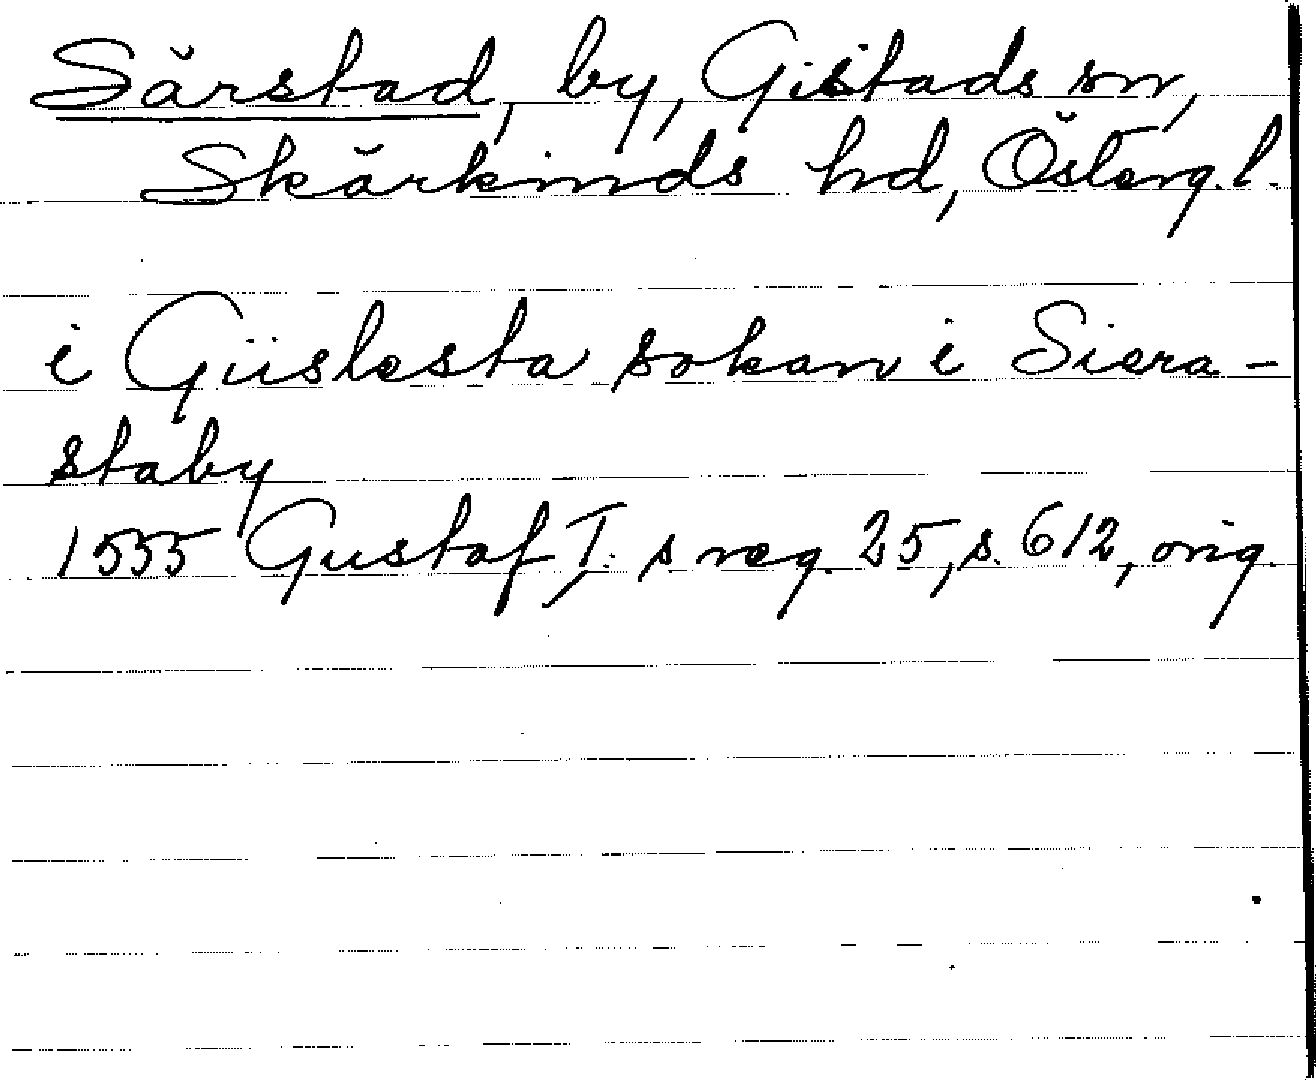 Särstad, by, Gistads sn,
Skärkinds hd, Österg.l.
i Giislesta sokan i Siera-
staby
1555 Gustaf I:s reg. 25, s. 612, orig.